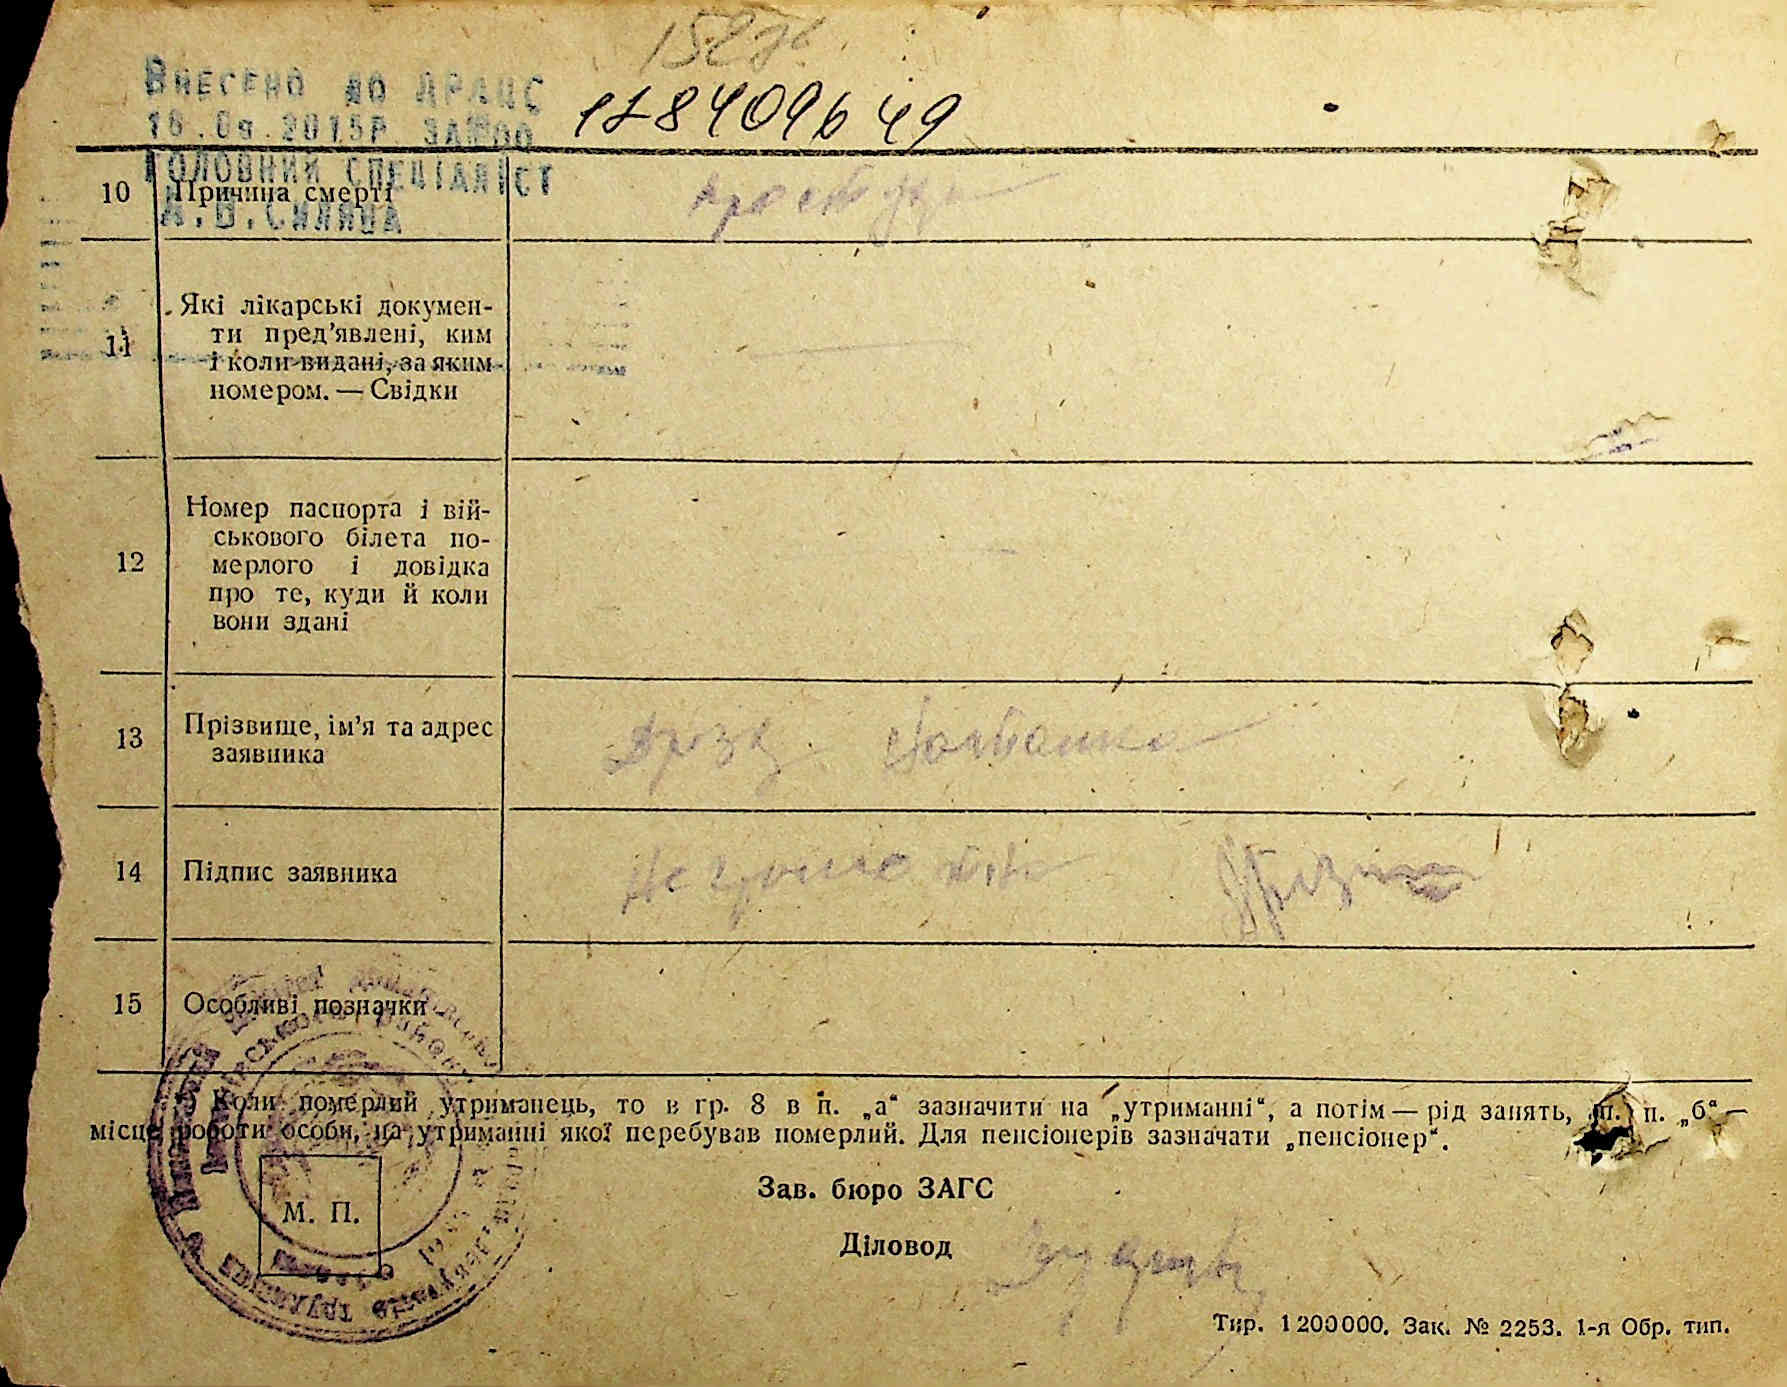 ВНЕСЕНО ДО ДРАЦС
18.09.2015Р.
ГОЛОВНИЙ СПЕЦІАЛІСТ
10 Причина смерті простуда
11 Які лікарські докумен-
ти пред’явлені, ким
і коли видані, за яким
номером. — Свідки
12 Номер паспорта і вій-
ськового білета по-
мерлого і довідка
про те, куди й коли
вони здані
13 Прізвище, ім’я та адрес
заявника
14 Підпис заявника
15 Особливі позначки
Коли померлий утриманець, то в гр. 8 в п. „а“ зазначити на „утриманні“, а потім — рід занять, п. „б“ —
місце роботи особи, на утриманні якої перебував померлий. Для пенсіонерів зазначати „пенсіонер“.
М. П.
Зав. бюро ЗАГС
Діловод
Тир. 1200000. Зак. № 2253. 1-я Обр. тип.